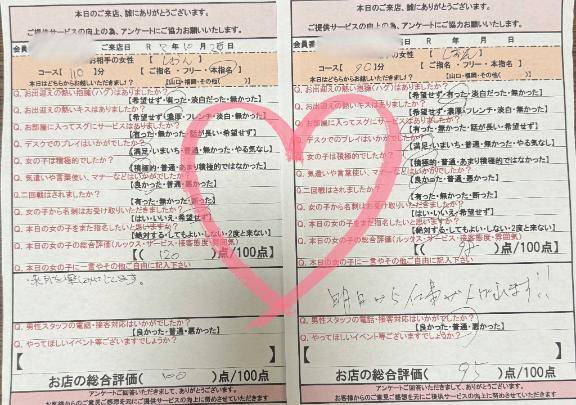 本日のご来店、誠にありがとうございます。
ご提供サービスの向上の為、アンケートにご協力お願いいたします。
会員
ご来店日 R 年10月 日
お相手の女性【
コース【110】分 【ご指名・フリー・本指名】
本日はどちらからお越しいただきましたか? 【山口・福岡・その他( )】
Q. お出迎えの熱い抱擁(ハグ)はありましたか?
【希望せず・有った・淡白だった・無かった】
Q. お出迎えの熱いキスはありましたか?
【希望せず・濃厚・フレンチ・淡白・無かった】
Q. お部屋に入ってスグにサービスはありましたか?
【有った・無かった・話が長い・希望せず】
Q. デスクでのプレイはいかがでしたか?
【満足・いまいち・普通・無かった・やる気なし】
Q. 女の子は積極的でしたか?
【積極的・普通・あまり積極的ではなかった】
Q. 気遣いや言葉使い、マナーなどはいかがでしたか?
【良かった・普通・悪かった】
Q. 二回戦はされましたか?
【有った・無かった・断った】
Q. 女の子から名刺はお受け取りいただきましたか?
【はい・いいえ・希望せず】
Q. 本日の女の子をまた指名したいと思いますか?
【絶対する・してもよい・しない・2度と来ない】
Q. 本日の女の子の総合評価(ルックス・サービス・接客態度・雰囲気)
【( 120 )点/100点】
Q. 本日の女の子に一言やその他ご自由に記入下さい
来月を楽しみにしてます。
Q. 男性スタッフの電話・接客対応はいかがでしたか?
【良かった・普通・悪かった】
Q. やってほしいイベント等ございますでしょうか?
お店の総合評価( 100 )点/100点
アンケートご回答いただきまして、ありがとうございます。
お客様からのご意見ご感想を元にご提供サービスの向上に努めさせていただきます
本日のご来店、誠にありがとうございます。
ご提供サービスの向上の為、アンケートにご協力お願いいたします。
会員番
お相手の女性【
コース【90】分 【ご指名・フリー・本指名】
本日はどちらからお越しいただきましたか? 【山口・福岡・その他( )】
Q. お出迎えの熱い抱擁(ハグ)はありましたか?
【希望せず・有った・淡白だった・無かった】
Q. お出迎えの熱いキスはありましたか?
【希望せず・濃厚・フレンチ・淡白・無かった】
Q. お部屋に入ってスグにサービスはありましたか?
【有った・無かった・話が長い・希望せず】
Q. デスクでのプレイはいかがでしたか?
【満足・いまいち・普通・無かった・やる気なし】
Q. 女の子は積極的でしたか?
【積極的・普通・あまり積極的ではなかった】
Q. 気遣いや言葉使い、マナーなどはいかがでしたか?
【良かった・普通・悪かった】
Q. 二回戦はされましたか?
【有った・無かった・断った】
Q. 女の子から名刺はお受け取りいただきましたか?
【はい・いいえ・希望せず】
Q. 本日の女の子をまた指名したいと思いますか?
【絶対する・してもよい・しない・2度と来ない】
Q. 本日の女の子の総合評価(ルックス・サービス・接客態度・雰囲気)
【( 95 )点/100点】
Q. 本日の女の子に一言やその他ご自由に記入下さい
明日から仕事がんばります!!
Q. 男性スタッフの電話・接客対応はいかがでしたか?
【良かった・普通・悪かった】
Q. やってほしいイベント等ございますでしょうか?
お店の総合評価( 95 )点/100点
アンケートご回答いただきまして、ありがとうございます。
お客様からのご意見ご感想を元にご提供サービスの向上に努めさせていただきます